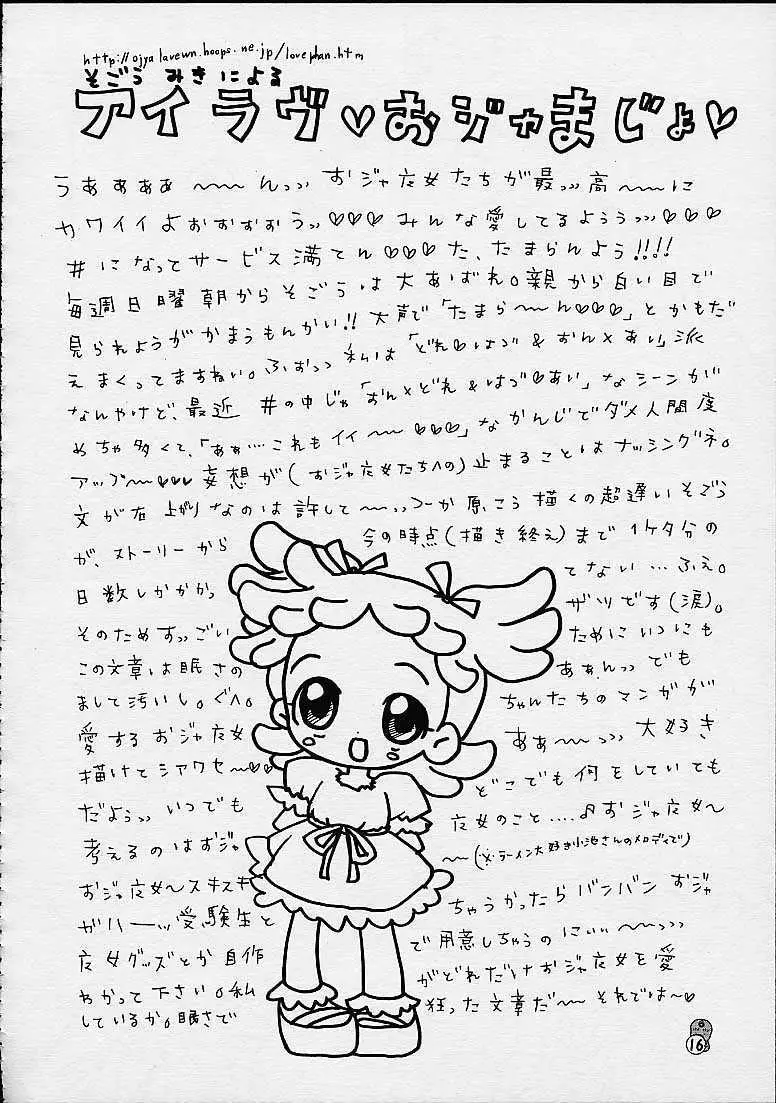 http://ojya lavewn.hoops.ne.jp/lovephan.htm
そごう みきによる
アイラヴ♡おジャまじょ♡
うああああ〜〜〜んっっ おジャ魔女たちが最っっ高〜〜〜に
カワイイよおおおおぅっ♡♡♡みんな愛してるよぅぅっっ♡♡♡
#になってサービス満てん♡♡♡た、たまらんよう!!!!
毎週日曜朝からそごうは大あばれ。親から白い目で
見られようがかまうもんかい!!大声で「たまら〜〜ん♡♡♡」とかもだ
えまくってますねい。ふおっっ 私は「どれ♡はづ&おん×あい」派
なんやけど、最近 #の中じゃ「おん×どれ&はづ♡あい」なシーンが
めちゃ多くて、「あぁ…これもイイ〜〜♡♡♡」なかんじでダメ人間度
アップ〜〜♡♡♡妄想が(おジャ魔女たちへの)止まることはナッシングネ。
文が右上がりなのは許して〜〜っつーか原こう描くの超遅いそごう
が、ストーリーから 今の時点(描き終え)まで1ケタ分の
日数しかかかっ てない…ふえ。
そのためすっごい ザツです(涙)。
この文章は眠さの ためにいつにも
まして汚いし。ぐへ。 あぁんっっでも
愛するおジャ魔女 ちゃんたちのマンガが
描けてシアワセ〜♡♡ あぁ〜〜っっ大好き
だようっっいつでも どこでも何をしていても
考えるのはおジャ 魔女のこと……♪おジャ魔女〜
おジャ魔女〜スキスキ 〜〜(※ラーメン大好き小池さんのメロディで)
がハーッッ受験生と ちゃうかったらバンバン おジャ
魔女グッズとか自作 で用意しちゃうのにぃぃ〜〜っっっ
わかって下さい。私 がどれだけおジャ魔女を愛
しているか。眠さで 狂った文章だ〜〜それでは〜♡
16